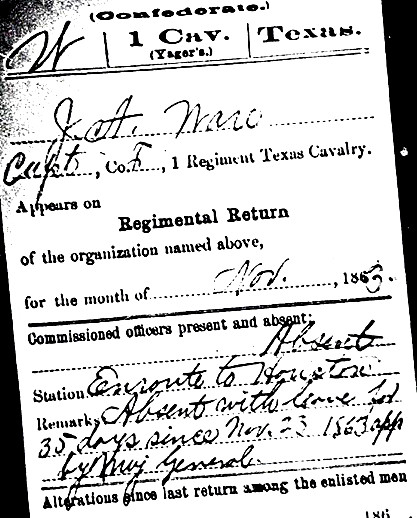 (Confederate.)
W | 1 Cav. | Texas.
(Yager's.)
J. A. Ware
Capt, Co. F, 1 Regiment Texas Cavalry.
Appears on
Regimental Return
of the organization named above,
for the month of Nov., 1863.
Commissioned officers present and absent:
Absent
Station Enroute to Houston
Remarks Absent with leave for
35 days since Nov. 23 1863 app
by Maj General
Alterations since last return among the enlisted men
186